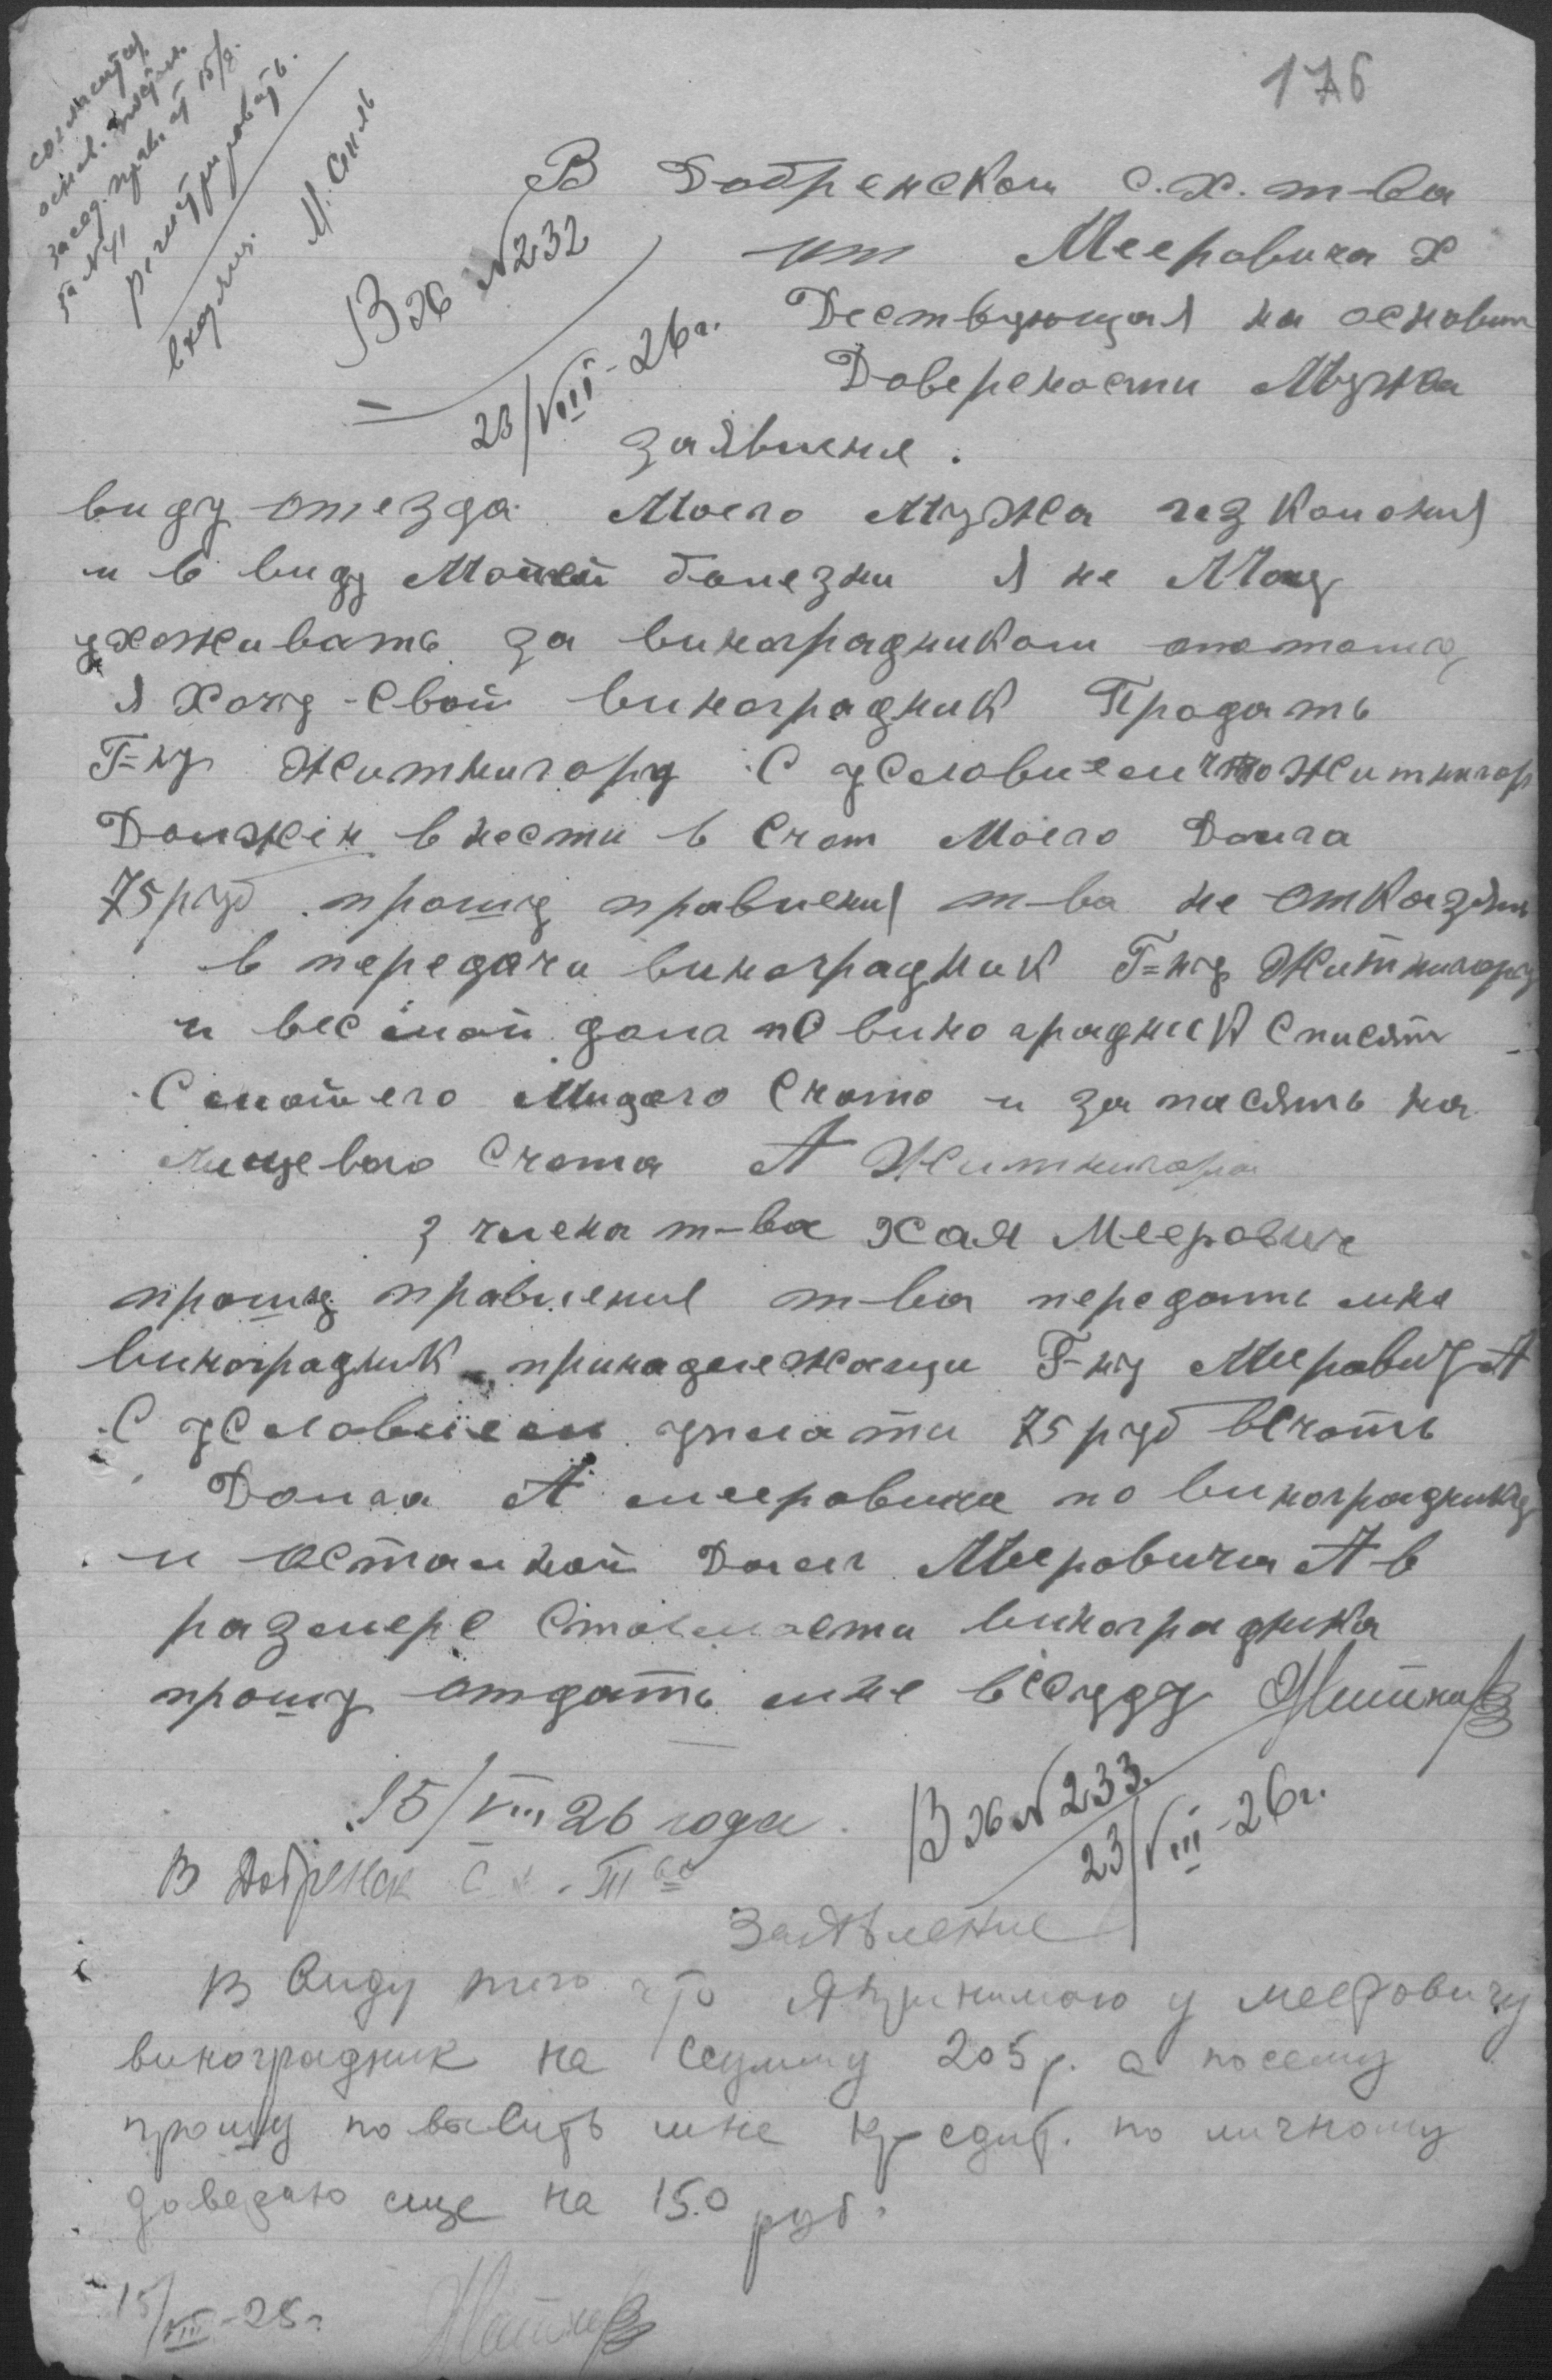 176
согласит
основ.
засед. правл от 15/8.
за №41
регистрировать.
входящ.
М.
Вх №232
23/VIII-26г.
В Добренском с.х. т-ва
от Мееровича Х
Дествующая на основан
Доверености Мужа
заявление.
виду отезда Моего Мужа
и в виду Моией болезни я не Могу
ухоживать за виноградником
я хочу свой виноградник Продать
Г=ну Житнигору С условием что Житнигор
Должен внести в Счот Моего Долга
75 руб прошу правления т-ва не отказать
в передачи виноградник Г=ну Житнигору
и вес мой долг по виноградник Списят
С моего Счото и записять на
лицевого Счота А Житнигора
з члена т-ва Хая Меерович
прошу правление т-ва передать мне
виноградник принадележащи Г-ну Меровичу А
С условием уплати 75 руб вСчоть
Долга А мееровича по винограднику
и остальной Долг Меровича А в
размере Стоимости виноградника
прошу отдать мне вСсуду
15/VIII 26 года.
Вх №233.
23/VIII-26г.
В Добренск С.Х. Т-во
Заявление
В Виду того что я принимаю у мееровичу
виноградник на Сумму 205 р. а посему
прошу повысить мне кредит. по личному
доверию еще на 150 руб.
15/VIII-26г